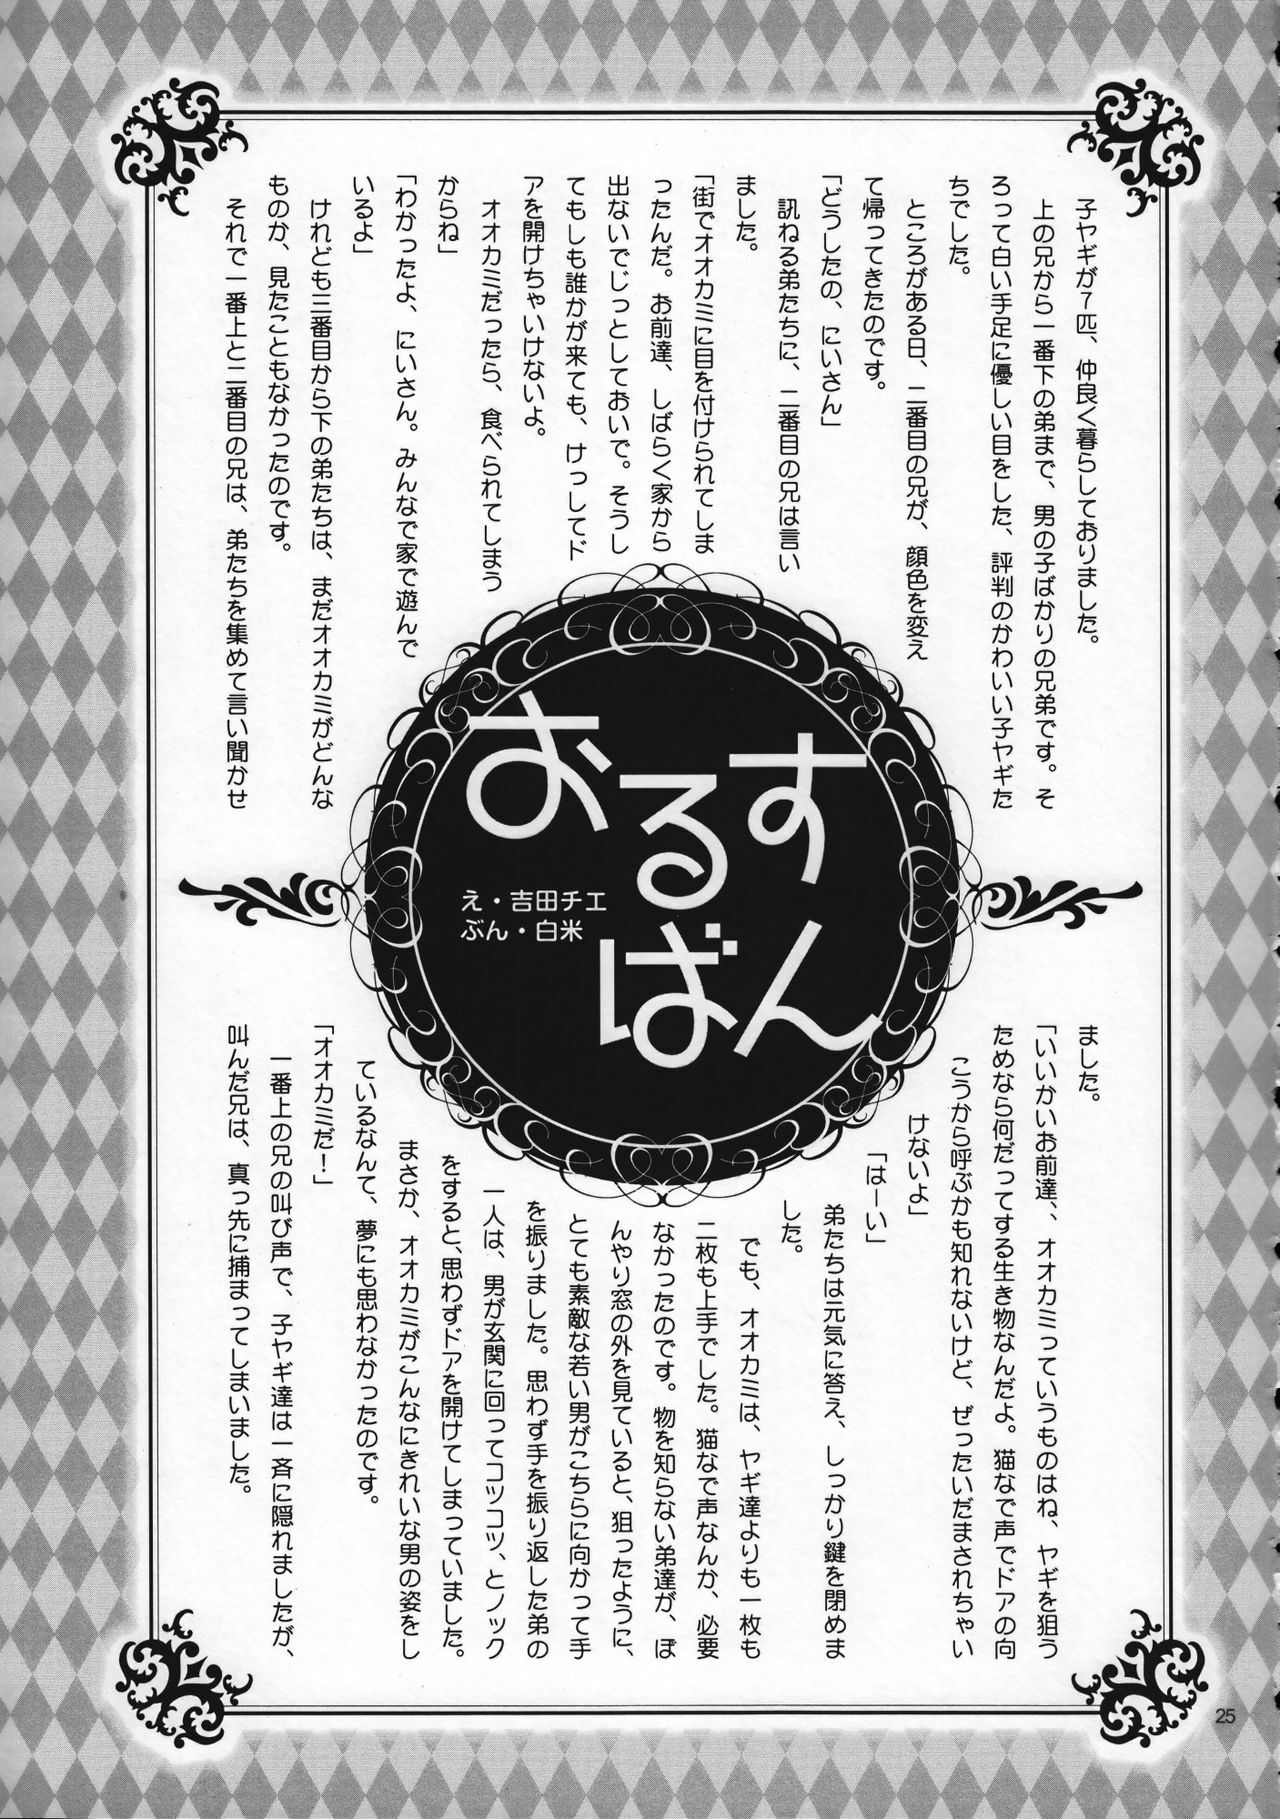 おるすばん
え・吉田チエ
ぶん・白米
子ヤギが7匹、仲良く暮らしておりました。
上の兄から一番下の弟まで、男の子ばかりの兄弟です。そ
ろって白い手足に優しい目をした、評判のかわいい子ヤギた
ちでした。
ところがある日、二番目の兄が、顔色を変え
て帰ってきたのです。
「どうしたの、にいさん」
訊ねる弟たちに、二番目の兄は言い
ました。
「街でオオカミに目を付けられてしま
ったんだ。お前達、しばらく家から
出ないでじっとしておいで。そうし
てもしも誰かが来ても、けっしてド
アを開けちゃいけないよ。
オオカミだったら、食べられてしまう
からね」
「わかったよ、にいさん。みんなで家で遊んで
いるよ」
けれども三番目から下の弟たちは、まだオオカミがどんな
ものか、見たこともなかったのです。
それで一番上と二番目の兄は、弟たちを集めて言い聞かせ
ました。
「いいかいお前達、、オオカミっていうものはね、ヤギを狙う
ためなら何だってする生き物なんだよ。猫なで声でドアの向
こうから呼ぶかも知れないけど、ぜったいだまされちゃい
けないよ」
「はーい」
弟たちは元気に答え、しっかり鍵を閉めま
した。
でも、オオカミは、ヤギ達よりも一枚も
二枚も上手でした。猫なで声なんか、必要
なかったのです。物を知らない弟達が、ぼ
んやり窓の外を見ていると、狙ったように、
とても素敵な若い男がこちらに向かって手
を振りました。思わず手を振り返した弟の
一人は、男が玄関に回ってコツコツ、とノック
をすると、思わずドアを開けてしまっていました。
まさか、オオカミがこんなにきれいな男の姿をし
ているなんて、夢にも思わなかったのです。
「オオカミだ！」
一番上の兄の叫び声で、子ヤギ達は一斉に隠れましたが、
叫んだ兄は、真っ先に捕まってしまいました。
25